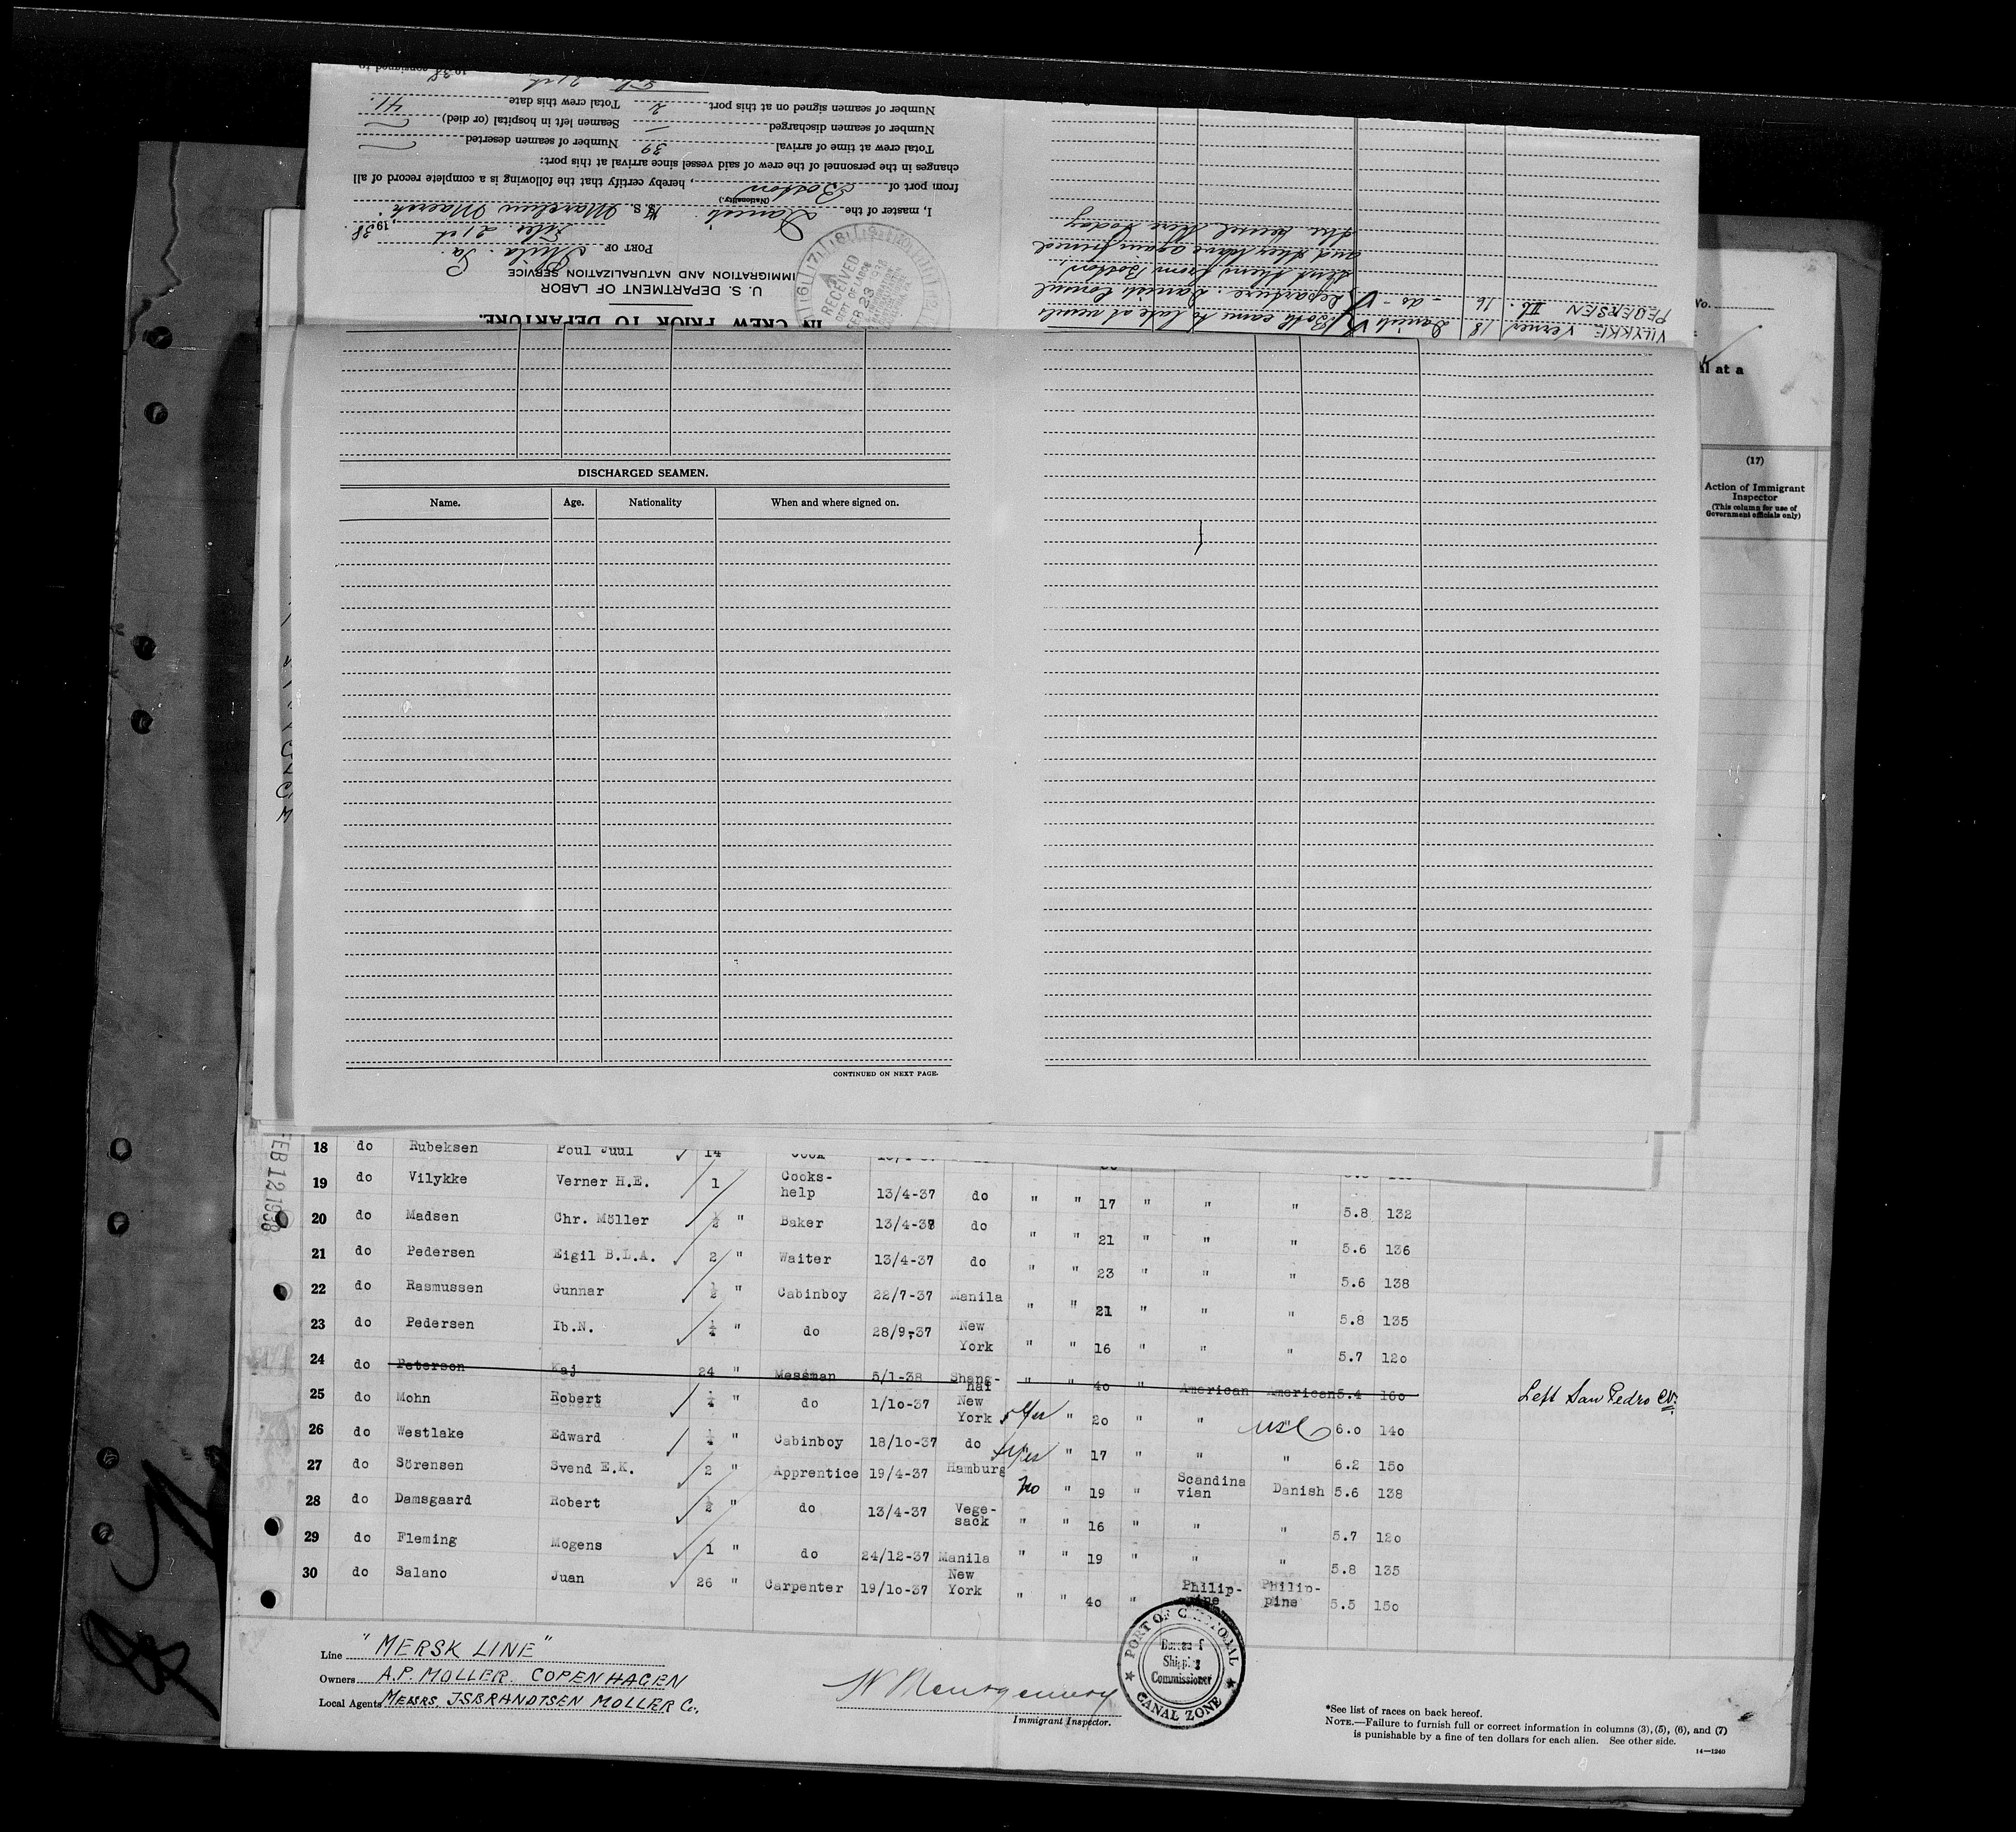 IN CREW PRIOR TO DEPARTURE.
U. S. DEPARTMENT OF LABOR
IMMIGRATION AND NATURALIZATION SERVICE
PORT OF Phila. Pa.
Feb. 21st, 1938.
I, master of the Danish M. S. Marchen Maersk
(Nationality.)
from port of Boston, hereby certify that the following is a complete record of all
changes in the personnel of the crew of said vessel since arrival at this port:
Total crew at time of arrival 39 Number of seamen deserted
Number of seamen discharged Seamen left in hospital (or died)
Number of seamen signed on at this port 2 Total crew this date 41.
RECEIVED
FEB 23 1938
VILYKKE Verner 18 Danish Both came to late at vessels
PEDERSEN Ib 16 - do - departure. Danish Consul
sent them from Boston,
and they have again joined
the vessel here today
DISCHARGED SEAMEN.
Name. Age. Nationality When and where signed on.
CONTINUED ON NEXT PAGE.
No.
at a
(17)
Action of Immigrant
Inspector
(This column for use of
Government officials only)
FEB 12 1938
18 do Rubeksen Poul Juul 14 Cook
19 do Vilykke Verner H.E. 1 Cooks-help 13/4-37 do " " 17 " " " 5.8 132
20 do Madsen Chr. Möller ½ " Baker 13/4-38 do " " 21 " " " 5.6 136
21 do Pedersen Eigil B.L.A. 2 " Waiter 13/4-37 do " " 23 " " " 5.6 138
22 do Rasmussen Gunnar ½ " Cabinboy 22/7-37 Manila " " 21 " " " 5.8 135
23 do Pedersen Ib.N. ¼ " do 28/9-37 New York " " 16 " " " 5.7 120
24 do Peterson Kaj 24 " Messman 5/1-38 Shang-hai " " 40 " American American 5.4 160 Left San Pedro
25 do Mohn Robert ¼ " do 1/10-37 New York yes " 20 " " USC 6.0 140
26 do Westlake Edward ¼ " Cabinboy 18/10-37 do yes " 17 " " " 6.2 150
27 do Sörensen Svend E.K. 2 " Apprentice 19/4-37 Hamburg no " 19 " Scandinavian Danish 5.6 138
28 do Damsgaard Robert ½ " do 13/4-37 Vege-sack " " 16 " " " 5.7 120
29 do Fleming Mogens 1 " do 24/12-37 Manila " " 19 " " " 5.8 135
30 do Salano Juan 26 " Carpenter 19/10-37 New York " " 40 " Philip-pine Philip-pine 5.5 150
Line "MERSK LINE"
Owners A.P. MOLLER. COPENHAGEN
Local Agents MESSRS. ISBRANDTSEN MOLLER Co.
Montgomery
Immigrant Inspector.
PORT OF CRISTOBAL
Bureau of
Shipping
Commissioner
CANAL ZONE
*See list of races on back hereof.
NOTE.—Failure to furnish full or correct information in columns (3), (5), (6), and (7)
is punishable by a fine of ten dollars for each alien. See other side.
14—1240